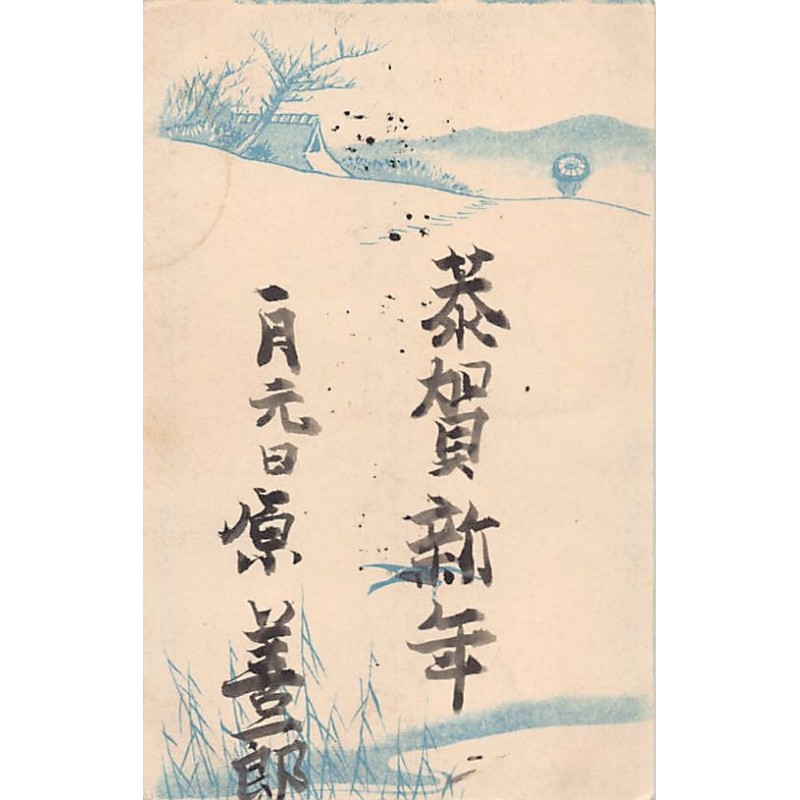 恭賀新年
一月元日 原善一郎